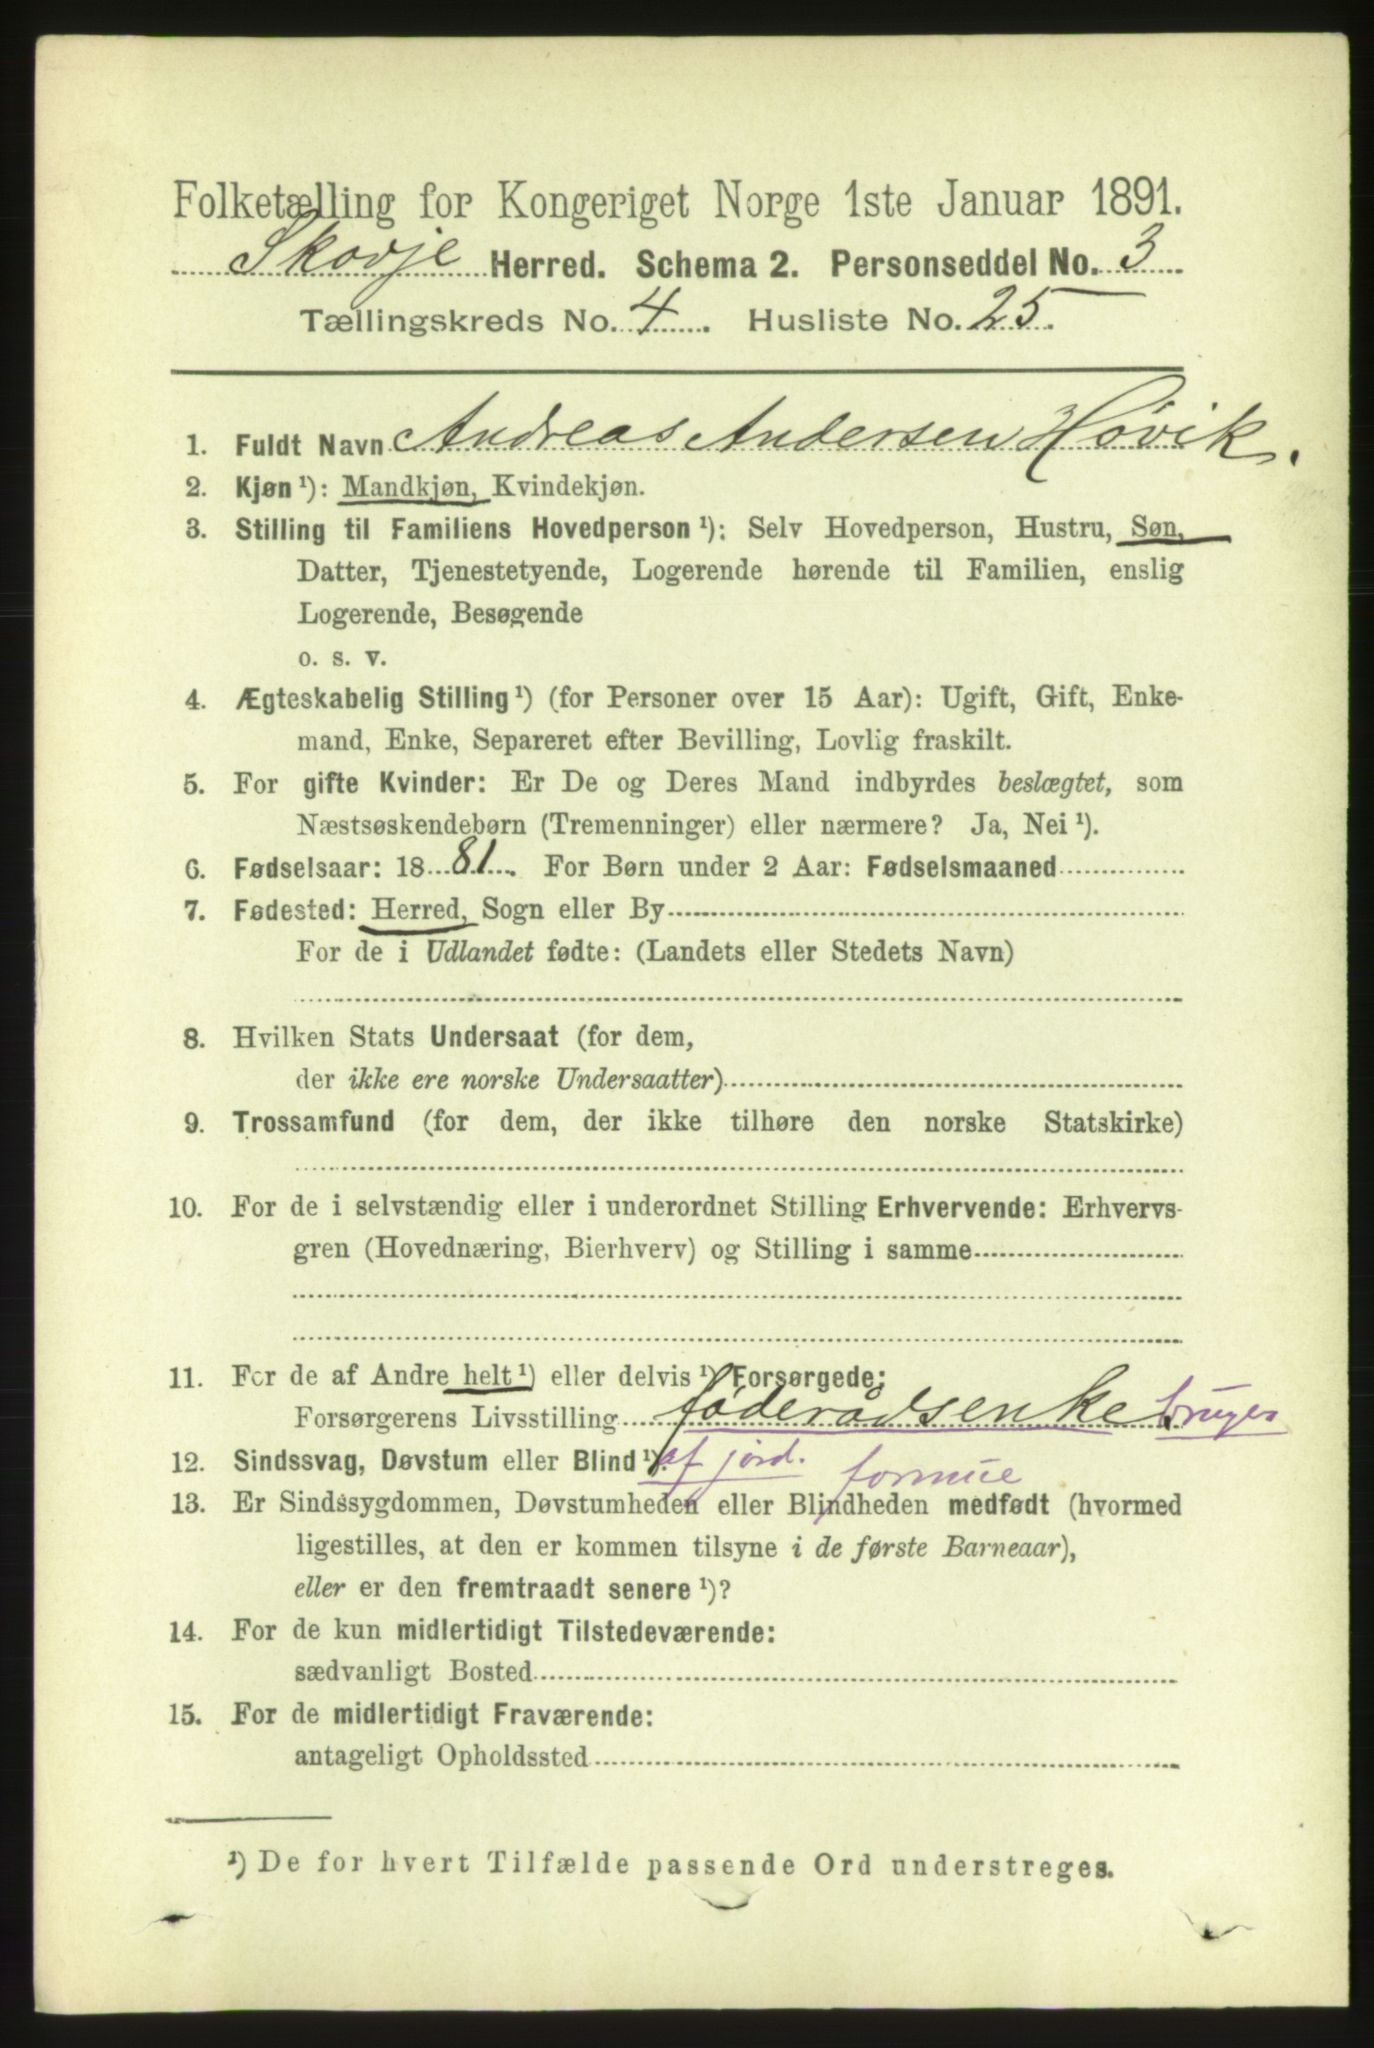 Folketælling for Kongeriget Norge 1ste Januar 1891.
Skodje Herred. Schema 2. Personseddel No. 3
Tællingskreds No. 4. Husliste No. 25.
1. Fuldt Navn Andreas Andersen Høvik.
2. Kjøn ¹): Mandkjøn, Kvindekjøn.
3. Stilling til Familiens Hovedperson ¹): Selv Hovedperson, Hustru, Søn,
Datter, Tjenestetyende, Logerende hørende til Familien, enslig
Logerende, Besøgende
o. s. v.
4. Ægteskabelig Stilling ¹) (for Personer over 15 Aar): Ugift, Gift, Enke-
mand, Enke, Separeret efter Bevilling, Lovlig fraskilt.
5. For gifte Kvinder: Er De og Deres Mand indbyrdes beslægtet, som
Næstsøskendebørn (Tremenninger) eller nærmere? Ja, Nei ¹).
6. Fødselsaar: 1881. For Børn under 2 Aar: Fødselsmaaned
7. Fødested: Herred, Sogn eller By
For de i Udlandet fødte: (Landets eller Stedets Navn)
8. Hvilken Stats Undersaat (for dem,
der ikke ere norske Undersaatter)
9. Trossamfund (for dem, der ikke tilhøre den norske Statskirke)
10. For de i selvstændig eller i underordnet Stilling Erhvervende: Erhvervs-
gren (Hovednæring, Bierhverv) og Stilling i samme
11. For de af Andre helt ¹) eller delvis ¹) Forsørgede:
Forsørgerens Livsstilling føderådsenke bruger
12. Sindssvag, Døvstum eller Blind ¹). af jord. formue
13. Er Sindssygdommen, Døvstumheden eller Blindheden medfødt (hvormed
ligestilles, at den er kommen tilsyne i de første Barneaar),
eller er den fremtraadt senere ¹)?
14. For de kun midlertidigt Tilstedeværende:
sædvanligt Bosted
15. For de midlertidigt Fraværende:
antageligt Opholdssted
¹) De for hvert Tilfælde passende Ord understreges.